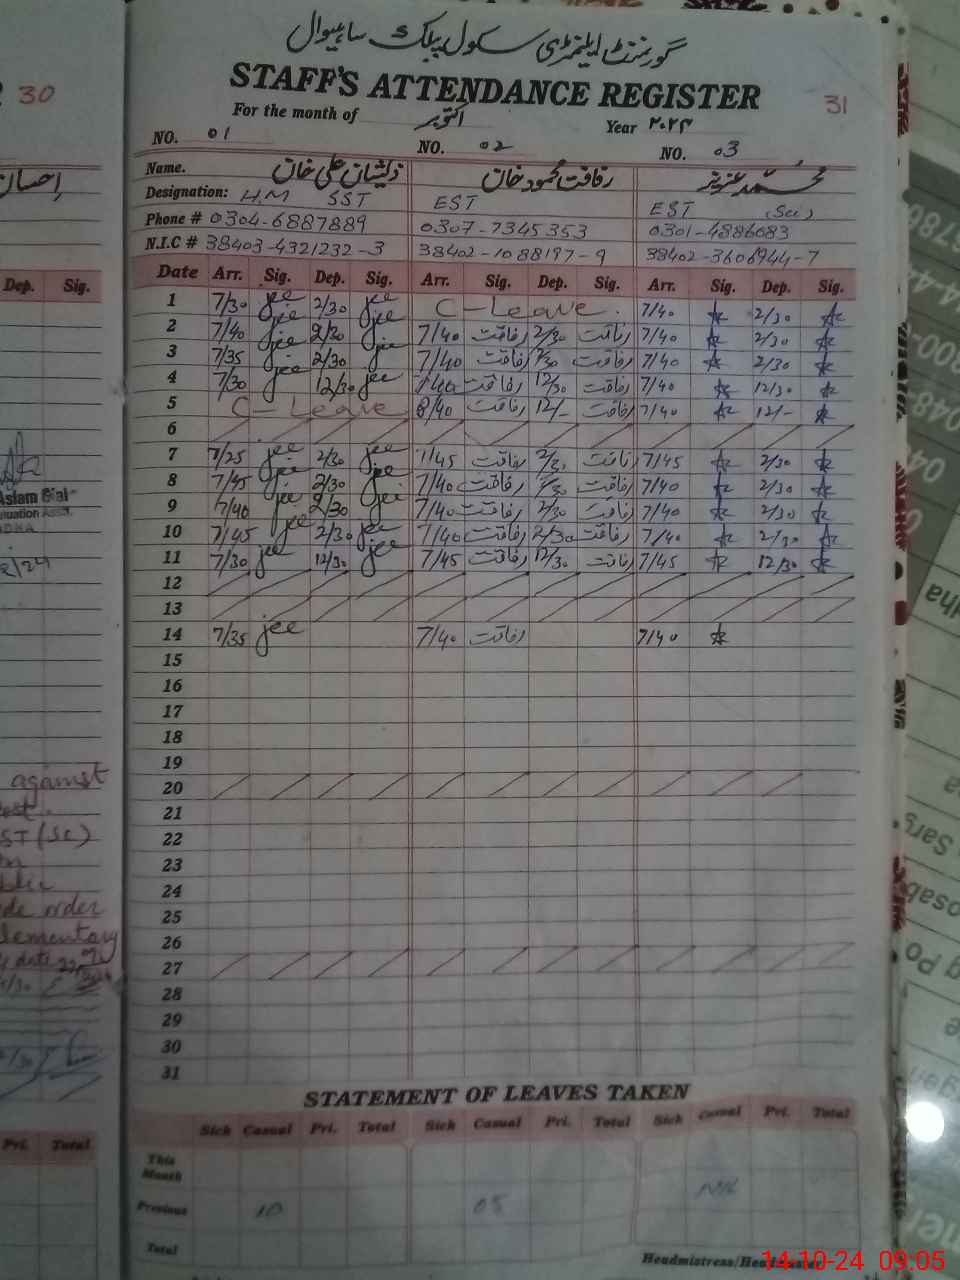 گورنمنٹ ایلیمنٹری سکول پبلک ساہیوال
STAFF'S ATTENDANCE REGISTER
30
31
For the month of اکتوبر
Year ۲۰۲۴
NO. 01 NO. 02 NO. 03
Name. ذیشان علی خان رفاقت محمود خان محمد عزیز
احسان
Designation: H.M SST EST EST (Sci)
Phone # 0304-6887889 0307-7345353 0301-4886083
N.I.C # 38403-4321232-3 38402-1088197-9 38402-3606944-7
Dep. Sig.
Date Arr. Sig. Dep. Sig. Arr. Sig. Dep. Sig. Arr. Sig. Dep. Sig.
1 7/30 jee 2/30 jee C-Leave. 7/40 2/30
2 7/40 jee 2/30 jee 7/40 رفاقت 2/30 رفاقت 7/40 2/30
3 7/35 jee 2/30 jee 7/40 رفاقت 2/30 رفاقت 7/40 2/30
4 7/30 jee 12/30 jee 7/40 رفاقت 12/30 رفاقت 7/40 12/30
5 C-Leave 8/40 رفاقت 12/- رفاقت 7/40 12/-
6
7 7/25 jee 2/30 jee 7/45 رفاقت 2/30 رفاقت 7/45 2/30
8 7/45 jee 2/30 jee 7/40 رفاقت 2/30 رفاقت 7/40 2/30
9 7/40 jee 2/30 jee 7/40 رفاقت 2/30 رفاقت 7/40 2/30
10 7/45 jee 2/30 jee 7/40 رفاقت 2/30 رفاقت 7/40 2/30
11 7/30 jee 12/30 jee 7/45 رفاقت 12/30 رفاقت 7/45 12/30
12
13
14 7/35 jee 7/40 رفاقت 7/40
15
16
17
18
19
20
21
22
23
24
25
26
27
28
29
30
31
against
ST (Sc)
order
Elementary
date
STATEMENT OF LEAVES TAKEN
Sick Casual Pri. Total Sick Casual Pri. Total Sick Casual Pri. Total
Pri. Total
This Month
Previous 10 05 Nil
Total
Headmistress/Headmaster
14-10-24 09:05